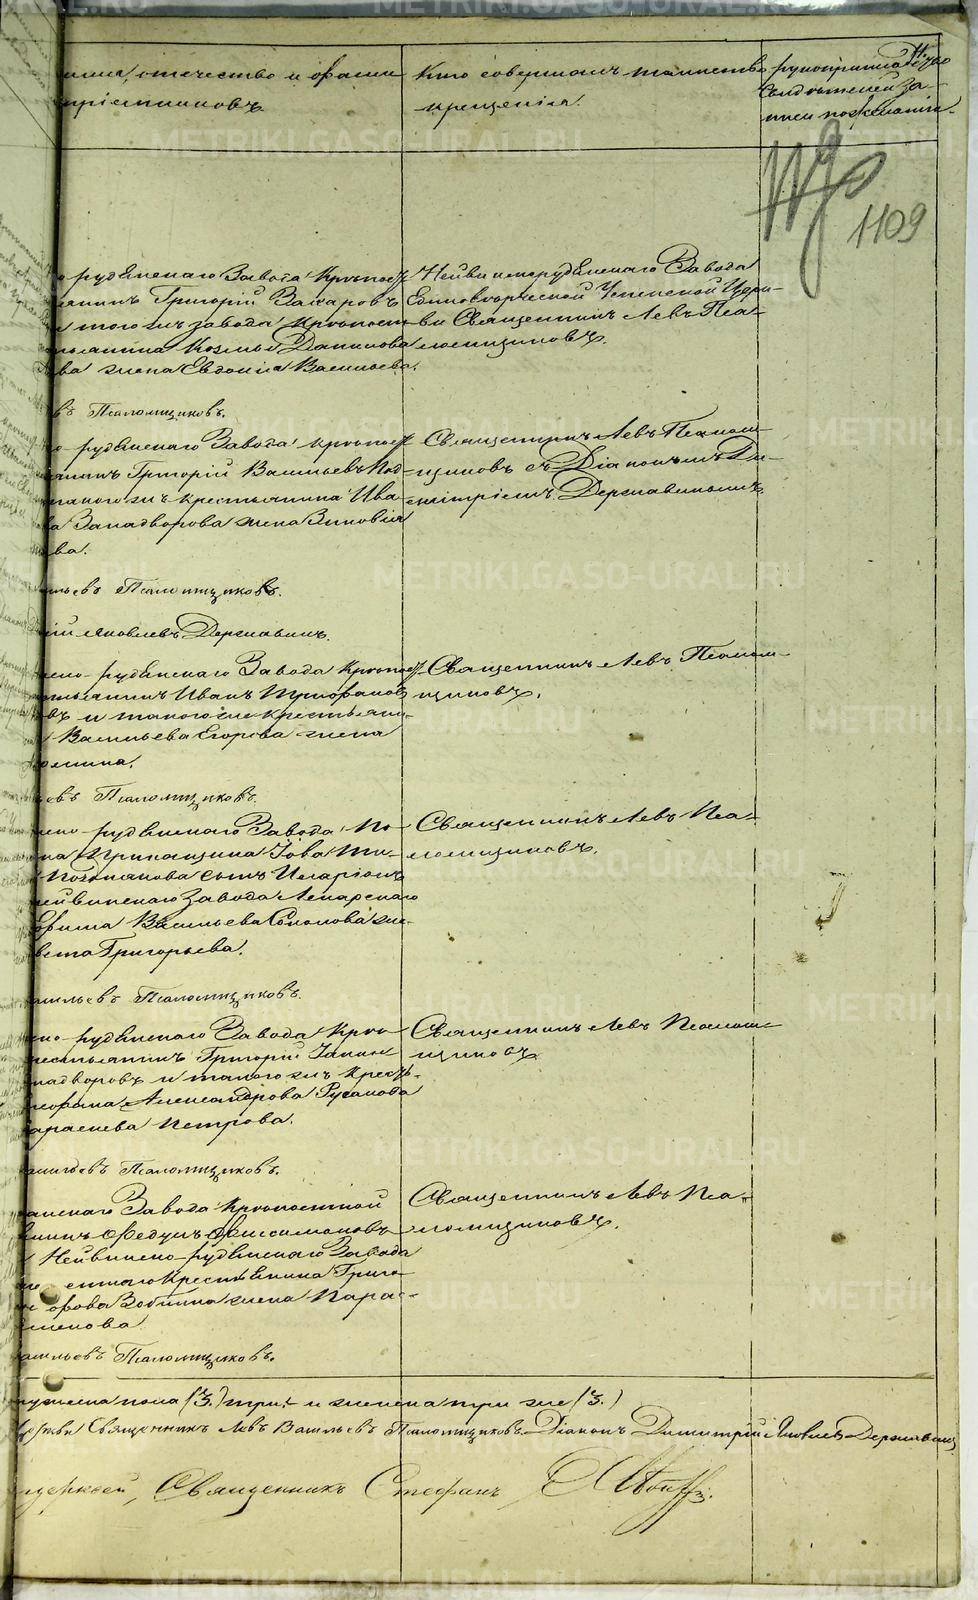 имя, отечество и фамил
пріемниковъ
Кто совершалъ таинство
крещенія.
рукоприкладство
свидѣтелей за-
писи по желанію.
1109
о рудянскаго Завода Крѣпост
янинъ Григорій Захаровъ
того жъ завода крѣпост-
тьянина Козьмы Данилова
ва жена Евдокія Васильева.
Нейвинскорудянскаго Завода
Единовѣрческой Успенской Церк-
ви Священникъ Левъ Пса-
ломщиковъ.
въ Псаломщиковъ.
о рудянскаго Завода крѣпост
янинъ Григорій Васильевъ Под-
такого жъ крестьянина Ива-
ва Западворова жена Зиновія
ва.
Священникъ Левъ Псалом-
щиковъ съ Діакономъ Ди-
митріемъ Державинымъ.
ильевъ Псаломщиковъ.
ій Яковлевъ Державинъ.
нско-рудянскаго Завода крѣпост
тьянинъ Иванъ Трифонов
въ и такого же крестьяни-
Васильева Егорова жена
омина.
Священникъ Левъ Псалом-
щиковъ.
евъ Псаломщиковъ.
нско-рудянскаго Завода По-
на Прикащика Іова Ти-
Поздякова сынъ Иларіонъ
ейвинскаго завода Лекарскаго
Ефима Васильева Соколова же-
вета Григорьева.
Священникъ Левъ Пса-
ломщиковъ.
асильевъ Псаломщиковъ.
нско-рудянскаго Завода Крѣпо
рестьянинъ Григорій
падворовъ и такого жъ Кресть-
Александрова Русакова
Петрова.
Священникъ Левъ Псалом-
щиковъ
асильевъ Псаломщиковъ.
янскаго Завода Крѣпостной
янинъ Федулъ
Нейвинско-рудянскаго Завода
стнаго Крестьянина Григо-
жена Парас-
менова
Священникъ Левъ Пса-
ломщиковъ.
асильевъ Псаломщиковъ.
мужеска пола (3.) три, и женска три же (3.)
Церкви Священникъ Левъ Васильевъ Псаломщиковъ. Діаконъ Димитрій Яковлевъ Державинъ
церквей, Священникъ Стефанъ
METRIKI.GASO-URAL.RU